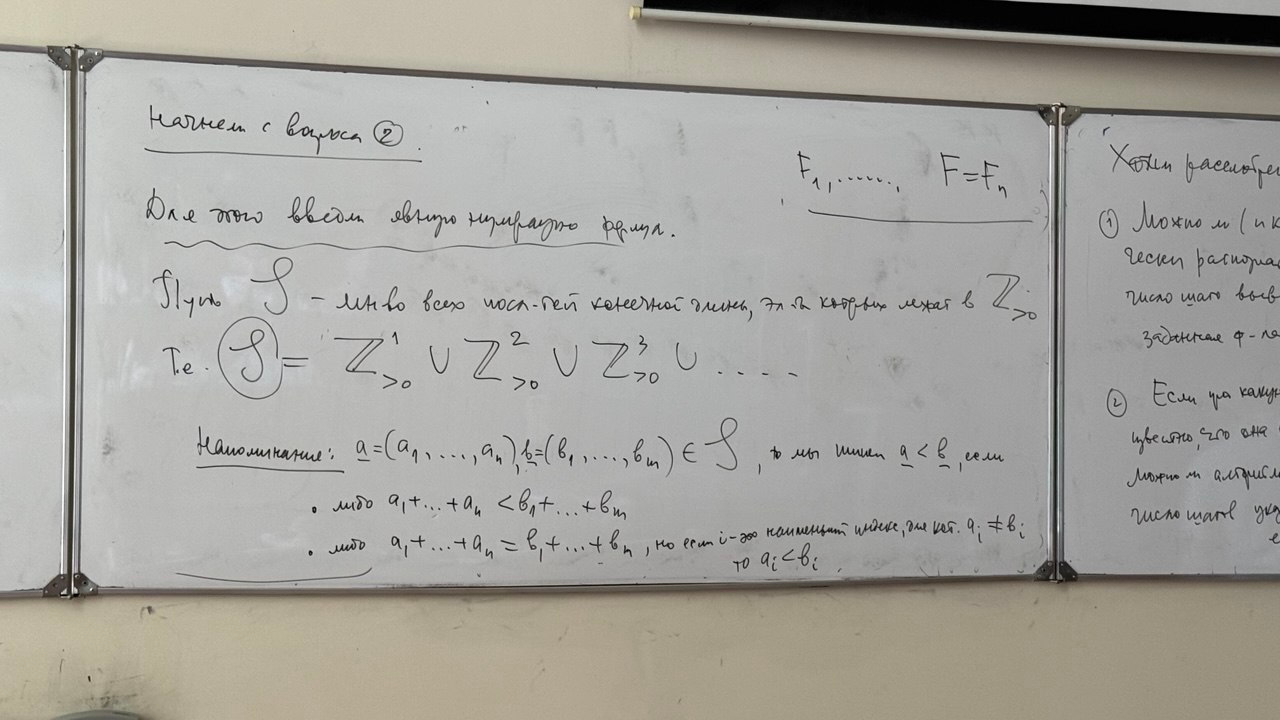 Начнем с вопроса ②.
F₁, ......, F = Fₙ
Для этого введем явную нумерацию формул.
Пусть 𝒮 – мн-во всех посл-тей конечной длины, эл-ты которых лежат в ℤ>0.
Т.е. 𝒮 = ℤ¹>0 ∪ ℤ²>0 ∪ ℤ³>0 ∪ ....
Напоминание: a = (a₁, ..., aₙ), b = (b₁, ..., bₘ) ∈ 𝒮, то мы пишем a < b, если
• либо a₁ + ... + aₙ < b₁ + ... + bₘ
• либо a₁ + ... + aₙ = b₁ + ... + bₘ, но если i – это наименьший индекс, для кот. aᵢ ≠ bᵢ
то aᵢ < bᵢ
Хотим рассмотре
① Можно ли (и к
чески распозна
число шагов выв
заданная ф-ла
② Если про какую
известно, что она
можно ли алгоритм
число шагов ука